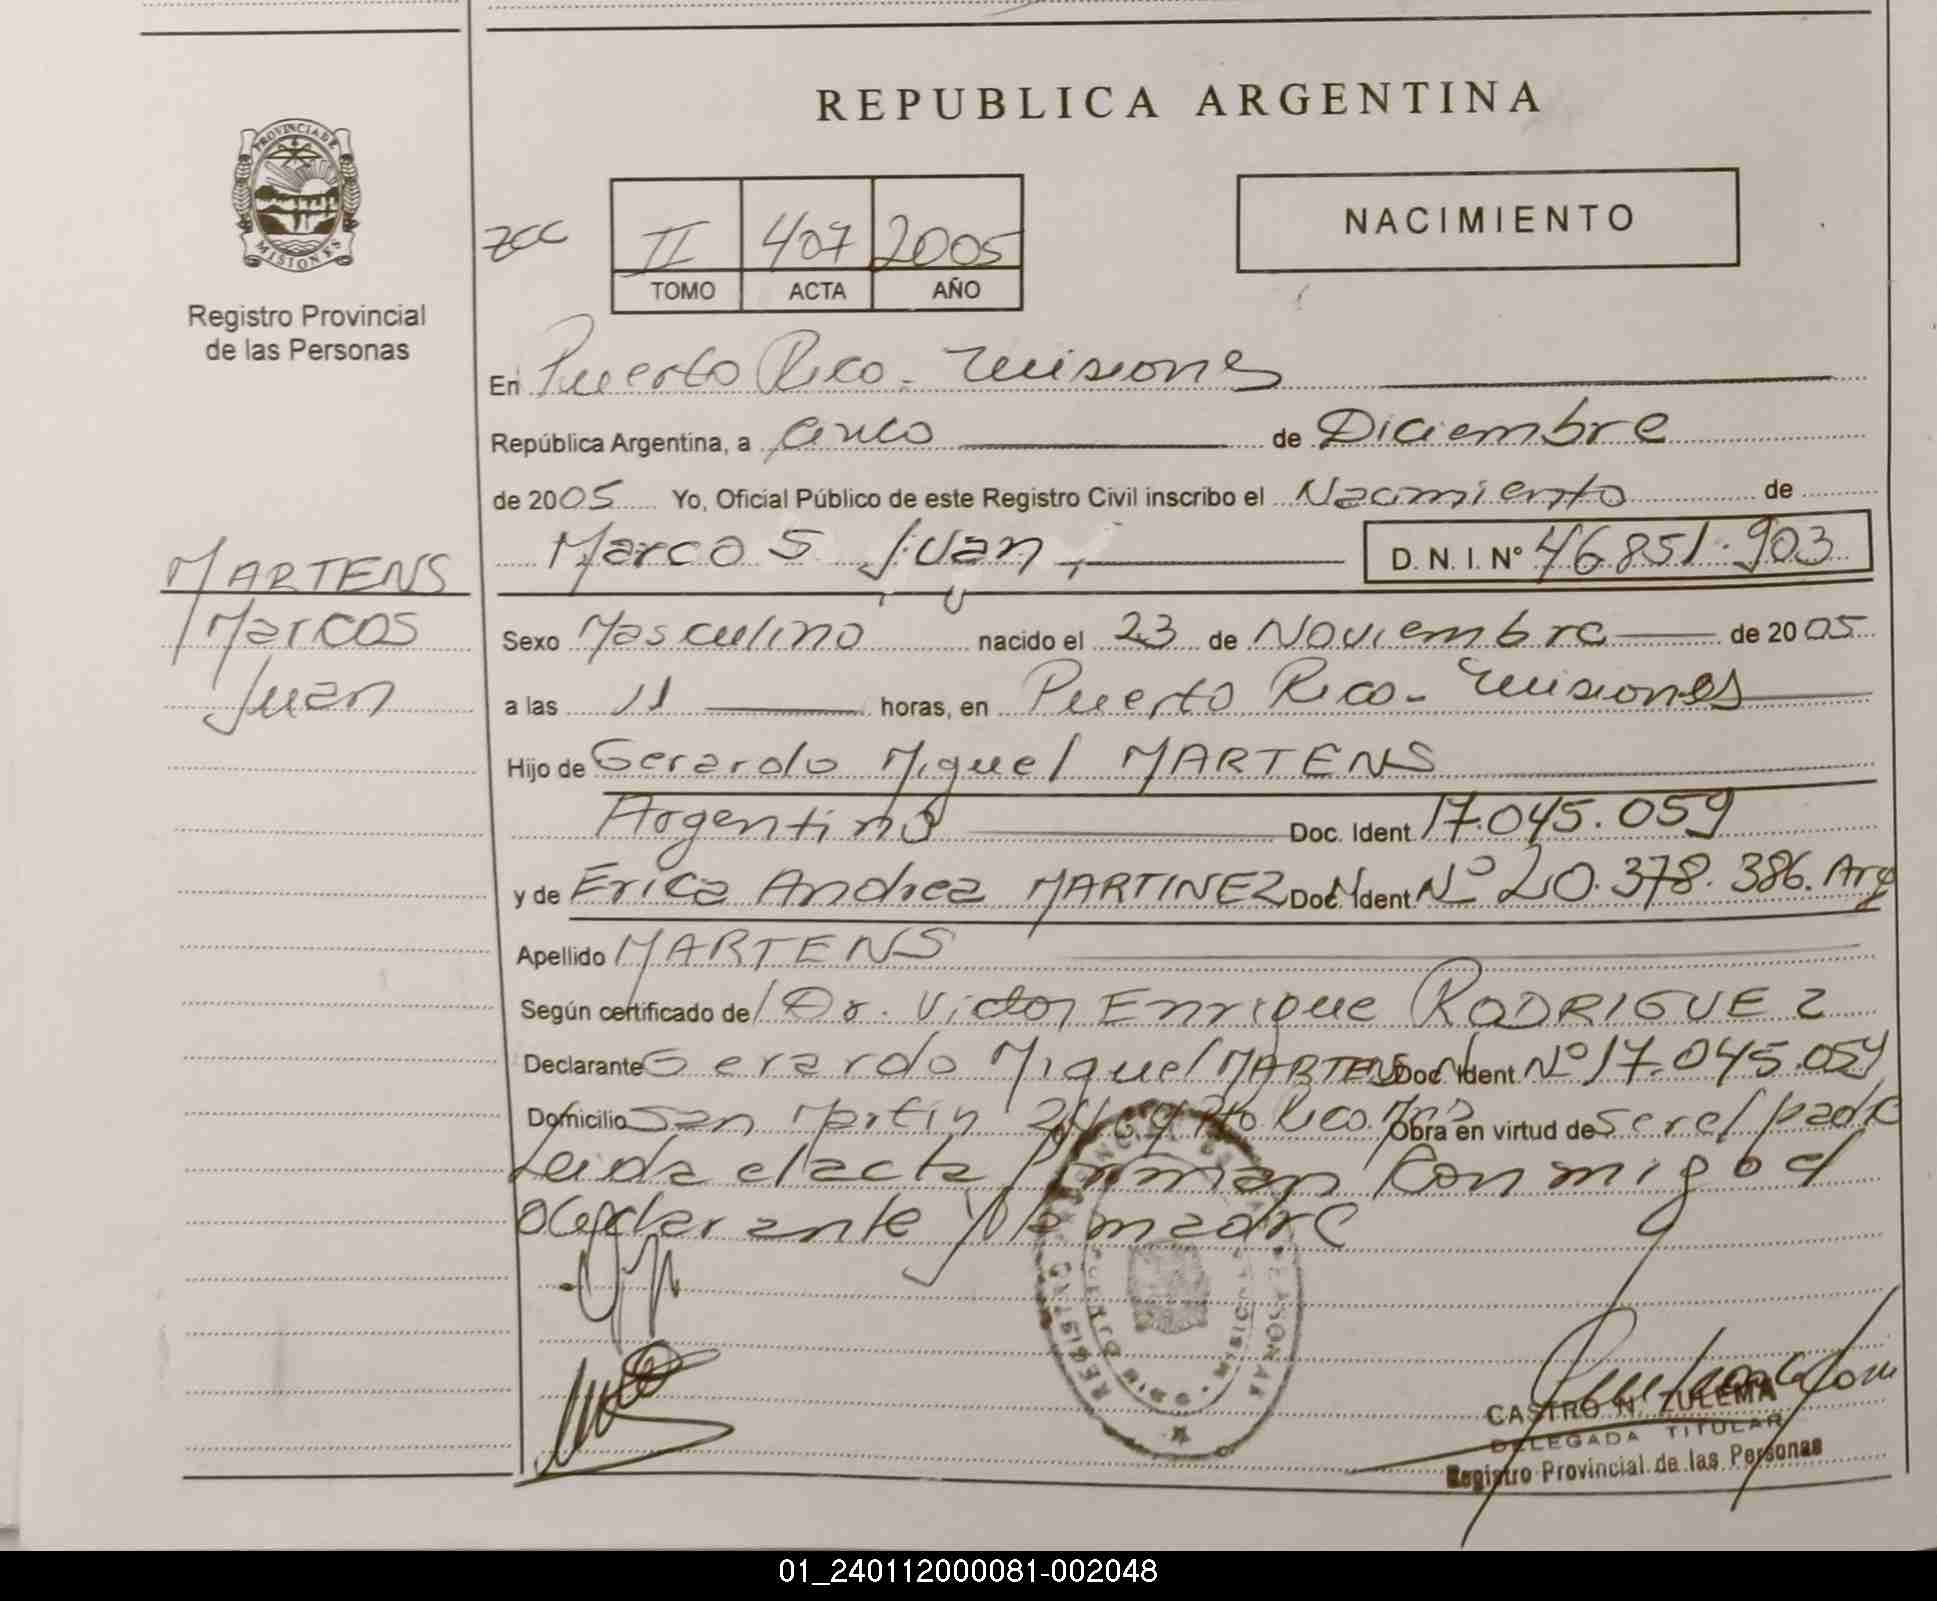 REPUBLICA ARGENTINA
PROVINCIA DE
MISIONES
Registro Provincial
de las Personas
NACIMIENTO
zcc
II 407 2005
TOMO ACTA AÑO
En Puerto Rico - Misiones
República Argentina, a cinco de Diciembre
de 2005 Yo, Oficial Público de este Registro Civil inscribo el Nacimiento de
Marcos Juan, D. N. I. Nº 46.851.903
MARTENS
Marcos
Juan
Sexo Masculino nacido el 23 de Noviembre de 2005
a las 11 horas, en Puerto Rico - Misiones
Hijo de Gerardo Miguel MARTENS
Argentino Doc. Ident. 17.045.059
y de Erica Andrea MARTINEZ Doc. Ident. Nº 20.378.386. Arg
Apellido MARTENS
Según certificado de Dr. Victor Enrique RODRIGUEZ
Declarante Gerardo Miguel MARTENS Doc. Ident. Nº 17.045.059
Domicilio San Martin Pto Rico Mnes Obra en virtud de ser el padre
Leida el acta firman conmigo el
declarante y la madre
REGISTRO
CASTRO N. ZULEMA
DELEGADA TITULAR
Registro Provincial de las Personas
01_240112000081-002048